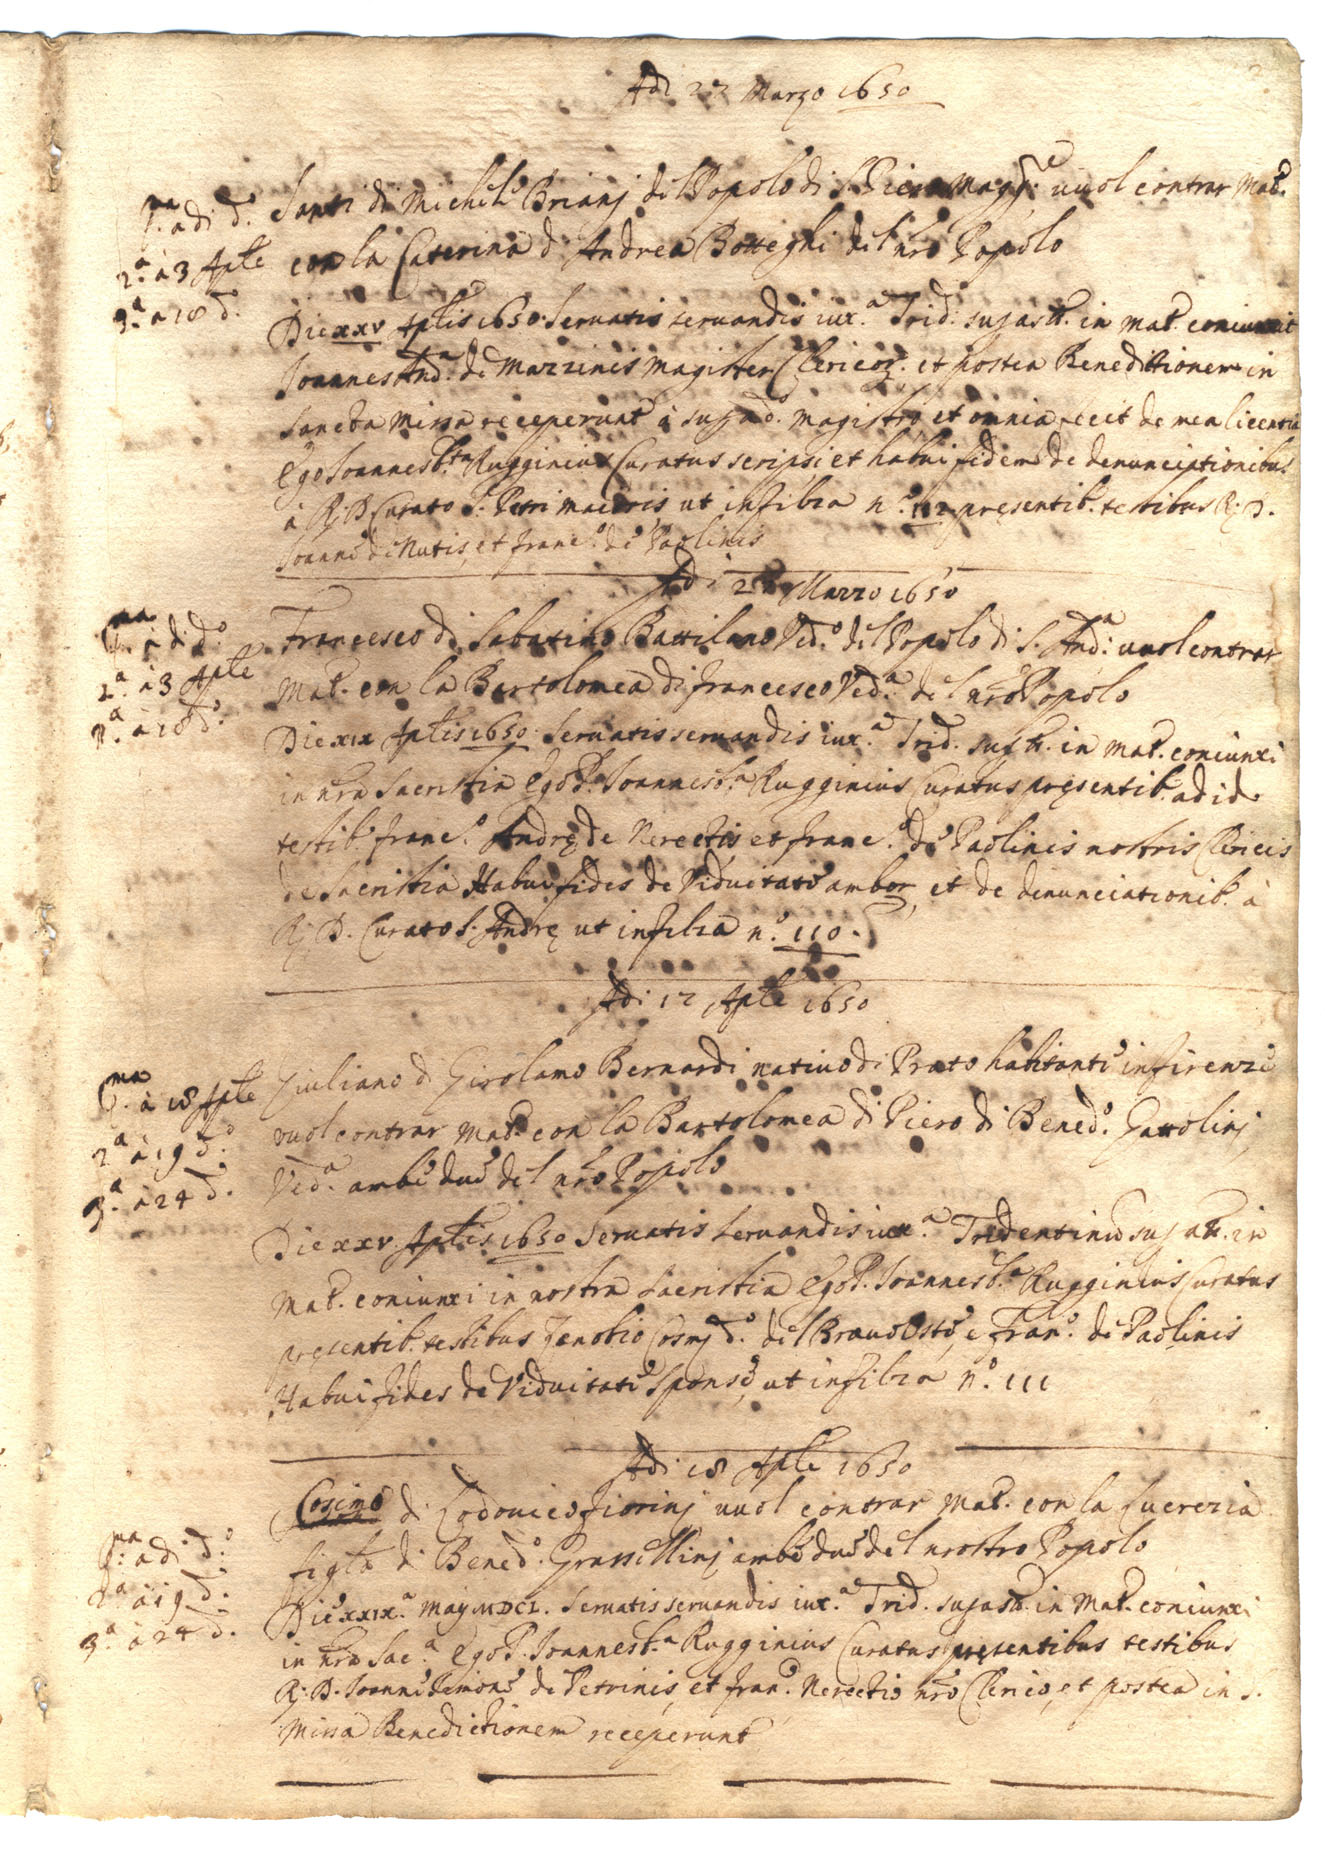 Adi 27 Marzo 1650
Santi di Michel Brianj del Popolo di S. Piero Magg.re uuol contrar Mat.o
con la Caterina d Andrea Botteghi del nro Popolo
p.ma adi d.o
2.a a 3 Aple
3.a a 18 d.
Die xxv Aplis 1650 Seruatis seruandis iux.a Trid. in Mat. coniunxit
Joannes And.a de Mazzinis Magister Clericor. et postea Benedictionem in
Sancta Missa receperunt à sup.ad.o Magistro et omnia fecit de mea licentia
Ego Joannes b.ta Rugginius Curatus scripsi, et habui fidem de denunciationibus
à R. D. Curato S. Petri maioris ut in filza n.o 112 presentib. testibus R. D.
Joanne de Nutis, et Franc.o de Paolinis
Adi 27 Marzo 1650
Francesco di Sabatino Battilano Ved.o del Popolo di S. And.a uuol contrar
Mat. con la Bartolomea di Francesco Ved.a del nro Popolo
p.ma a di d.o
2.a a 3 Aple
3.a a 18 d.o
Die xix Aplis 1650 Seruatis seruandis iux.a Trid. in Mat. coniunxi
in nra Sacristia Ego P. Joannes b.a Rugginius Curatus presentib. ad id
testib. Franc.o Andre de Nerectis et Franc.o de Paolinis nostris Clericis
de Sacristia Habui fides de Viduitate ambor, et de denunciationib. à
R. D. Curato S. Andre ut in filza n.o 110.
Adi 17 Aple 1650
Giuliano d Girolamo Bernardi natiuo di Prato habitante in firenze
vuol contrar Mat. con la Bartolomea di Piero di Bened.o Gattolinj
Ved.a ambe due del nro Popolo
p.ma a 18 Aple
2.a a 19 d.o
3.a a 24 d.
Die xxv Aplis 1650 Seruatis seruandis iux.a Tridentinu in
Mat. coniunxi in nostra Sacristia Ego P. Joannes b.a Rugginius Curatus
presentib. testibus Zenobio Cosmj d.o del Brauo Oste, e Fran.o de Paolinis
Habui fides de Viduitate Sponse, ut in filza n.o 111
Adi 18 Aple 1650
Cosimo di Lodouico Fiorinj uuol contrar Mat. con la Lucrezia
figla di Bened.o Grassellinj ambe due del nrostro Popolo
p.ma a di d.o
2.a a 19 d.
3.a a 24 d.
Die xxix.a Maij MDCL. Seruatis seruandis iux.a Trid. in Mat. coniunxi
in nra Sac.a Ego P. Joannes b.a Rugginius Curatus presentibus testibus
R. D. Joanne Simone de Petrinis, et Fran.o Nerectio nro Clerico, et postea in S.
Missa Benedictionem receperunt